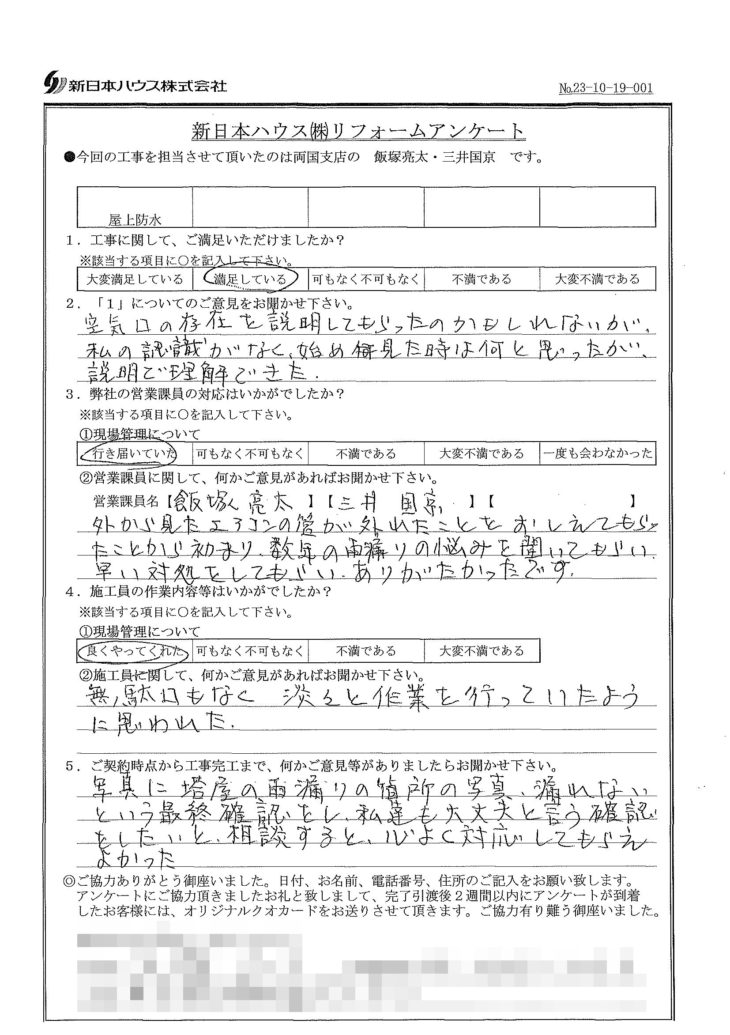 新日本ハウス株式会社
№23-10-19-001
新日本ハウス㈱リフォームアンケート
●今回の工事を担当させて頂いたのは両国支店の 飯塚亮太・三井国京 です。
屋上防水
1．工事に関して、ご満足いただけましたか？
※該当する項目に○を記入して下さい。
大変満足している 満足している 可もなく不可もなく 不満である 大変不満である
2．「1」についてのご意見をお聞かせ下さい。
空気口の存在を説明してもらったのかもしれないが、
私の認識がなく、始め見た時は何と思ったが、
説明で理解できた.
3．弊社の営業課員の対応はいかがでしたか？
※該当する項目に○を記入して下さい。
①現場管理について
行き届いていた 可もなく不可もなく 不満である 大変不満である 一度も会わなかった
②営業課員に関して、何かご意見があればお聞かせ下さい。
営業課員名【飯塚 亮太 】【三井 国京 】【 】
外から見たエアコンの管が外れたことをおしえてもらっ
たことから初まり、数年の雨漏りの悩みを聞いてもらい
早い対処をしてもらい、ありがたかったです.
4．施工員の作業内容等はいかがでしたか？
※該当する項目に○を記入して下さい。
①現場管理について
良くやってくれた 可もなく不可もなく 不満である 大変不満である
②施工員に関して、何かご意見があればお聞かせ下さい。
無駄口もなく 淡々と作業を行っていたよう
に思われた.
5．ご契約時点から工事完工まで、何かご意見等がありましたらお聞かせ下さい。
写真に塔屋の雨漏りの箇所の写真、漏れない
という最終確認をし、私達も大丈夫と言う確認
をしたいと、相談すると、心よく対応してもらえ
よかった
◎ご協力ありがとう御座いました。日付、お名前、電話番号、住所のご記入をお願い致します。
アンケートにご協力頂きましたお礼と致しまして、完了引渡後２週間以内にアンケートが到着
したお客様には、オリジナルクオカードをお送りさせて頂きます。ご協力有り難う御座いました。